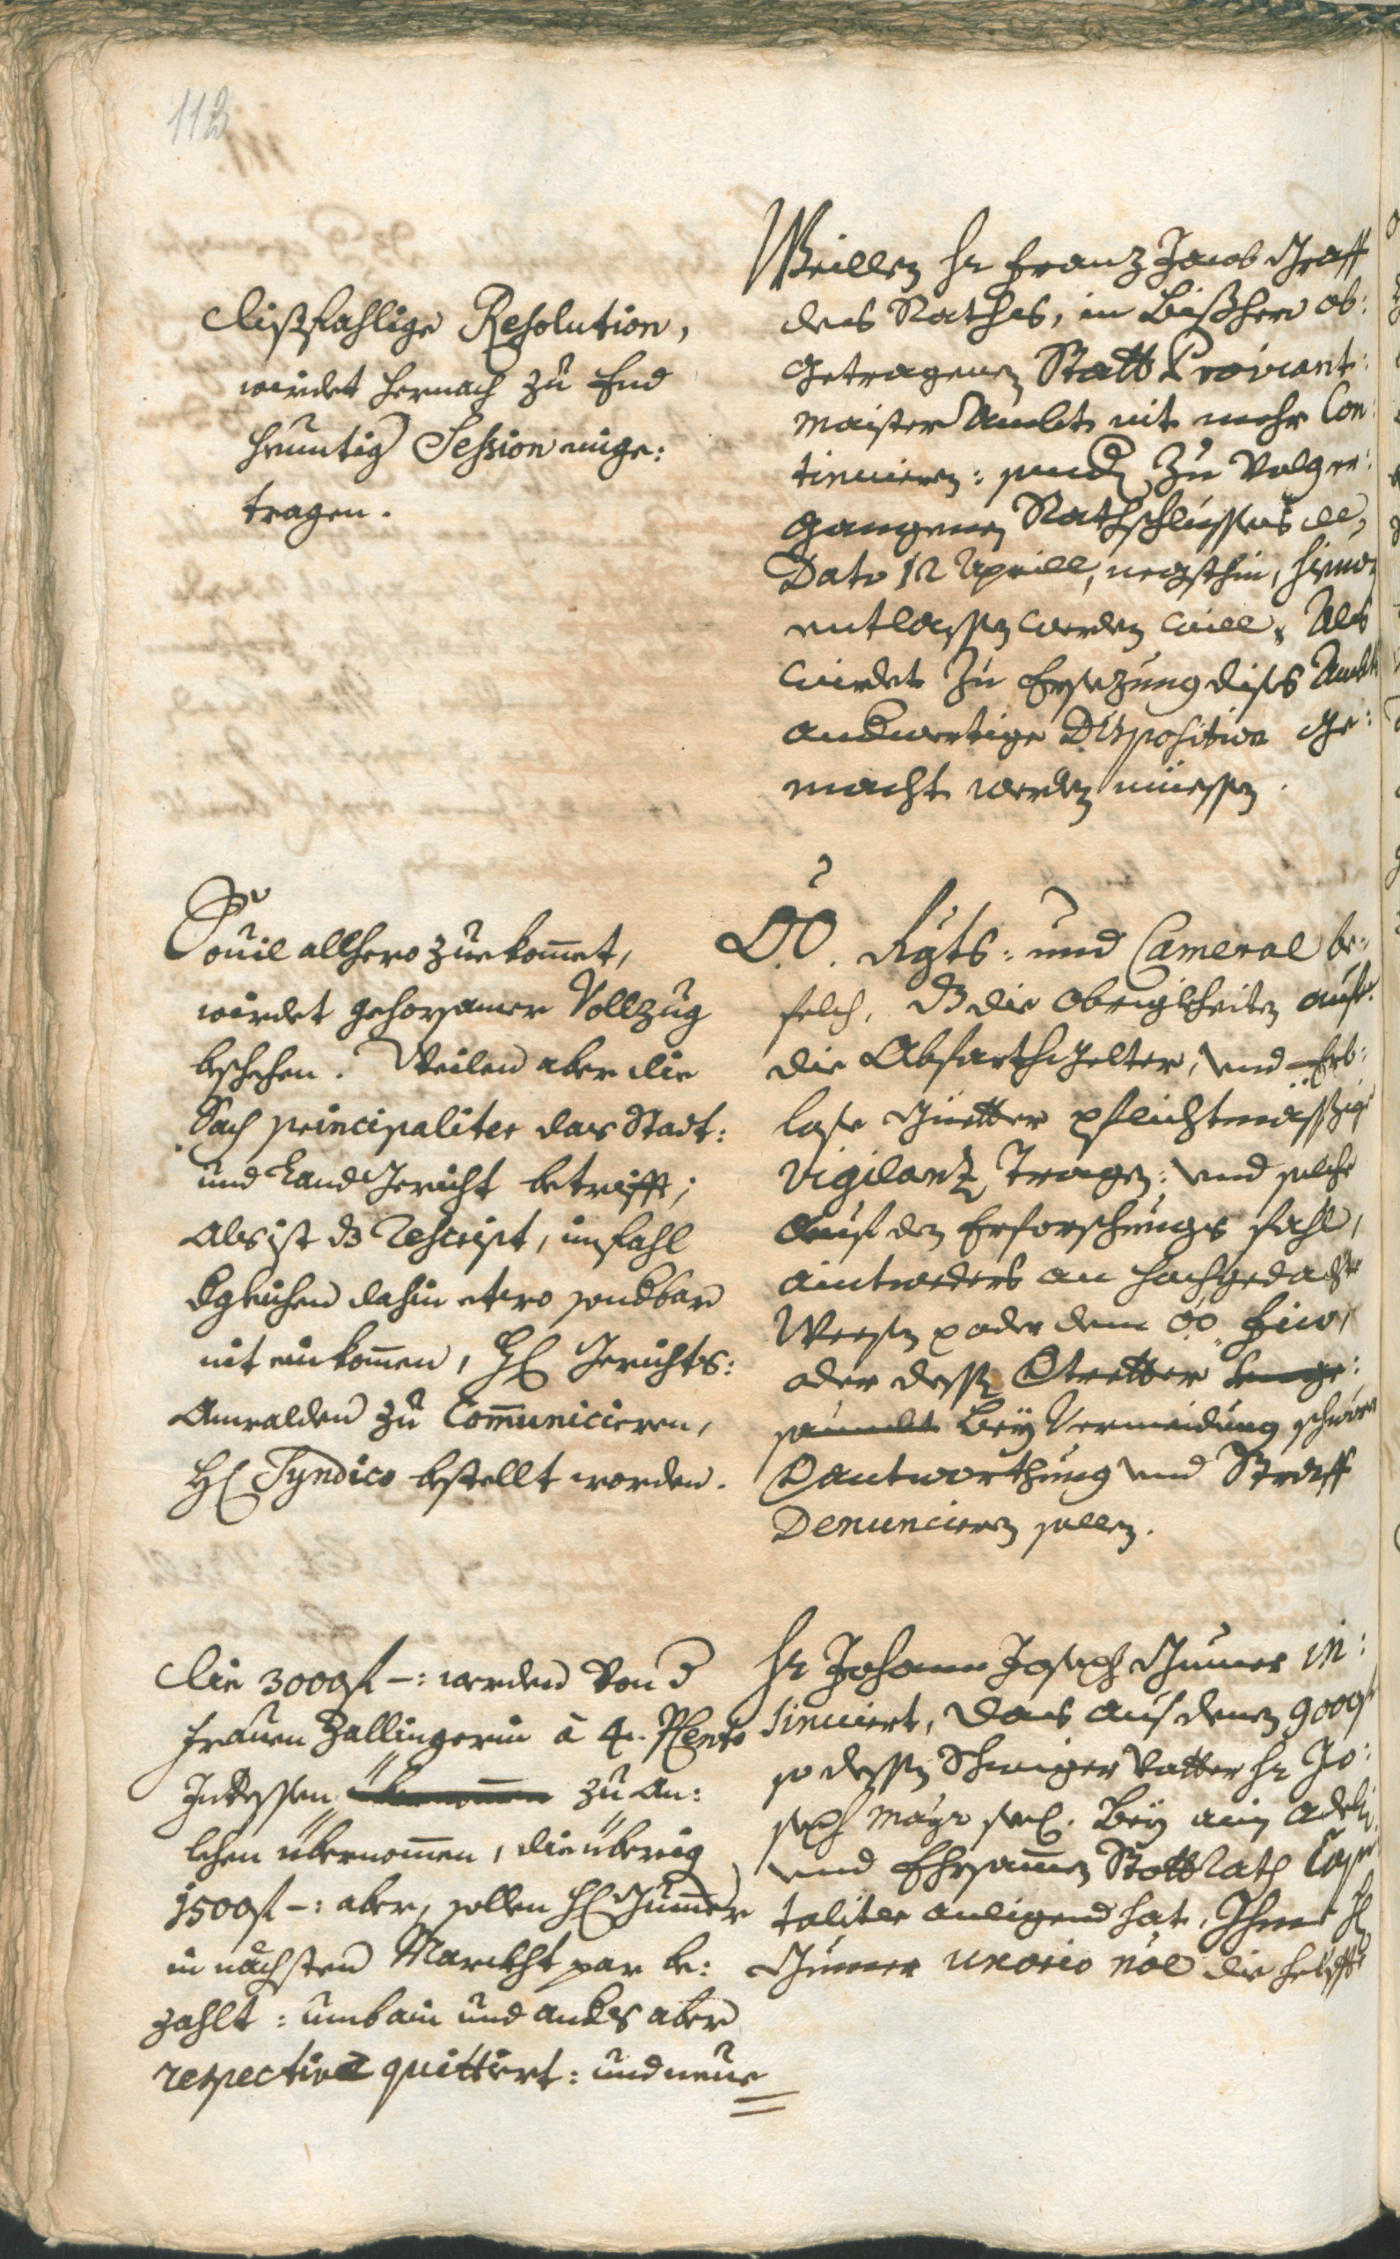 112
Weillen Hr Franz Jacob Graff
des Rathes, in bißhero ob:
getragenen Statt Proviant:
maister Ambt nit mehr Con:
tinuieren: sond zu Volg er:
gangenen Rathschlusses de
Dato 12 Aprill, negsthin, hievon
entlassen werden will, Als
wirdet zu Ersezung dises Ambts
andwertige Disposition ge:
macht werden müessen.
dißfahlige Resolution,
wirdet hernach zu End
heuntig Session einge:
tragen.
OÖ. Rgts: und Cameral be:
felch, dz die Obrigkheiten auf
die Abfarth Gelter, und Erb:
lose Güetter pflichtmässige
Vigilanz tragen: und solche
auf den Erforschungs fahl,
aintweders an hochgedachte
Weesen oder dem OÖ Fisco,
oder dessen Vtretter
bey Vermeidung schwerer
Vantworthung und Straff
Denuncieren sollen.
Souil allhero zuekom̄et,
wirdet gehorsamer Vollzug
beschehen. Weilen aber die
Sach principaliter das Stadt:
und Land Gericht betrifft;
Als ist dz Rescript, im fahl
dgleichen dahin etwo sondbar
nit einkom̄en, H Gerichts:
Anwalden zu Com̄unicieren,
H Syndico bestellt worden.
Hr Johann Joseph Gummer in:
sinuiert, das aus denen 9000 f
so dessen Schwiger Vatter Hr Jo:
seph Mayr seel. bey ain Adeli.
und Ehrsammen StattRath Capi
taliter anligend hat, Ihme H
Gummer uxorio noe die helffte
die 3000 f –: werden Von d
Frauen Zallingerin à 4. PCento
Intressen zu An:
lehen übernom̄en, die überig
1500 f –: aber, sollen H Gummer
in nächsten Marckht par be:
zahlt: umb ain und ands aber
respective quittiert: und neue